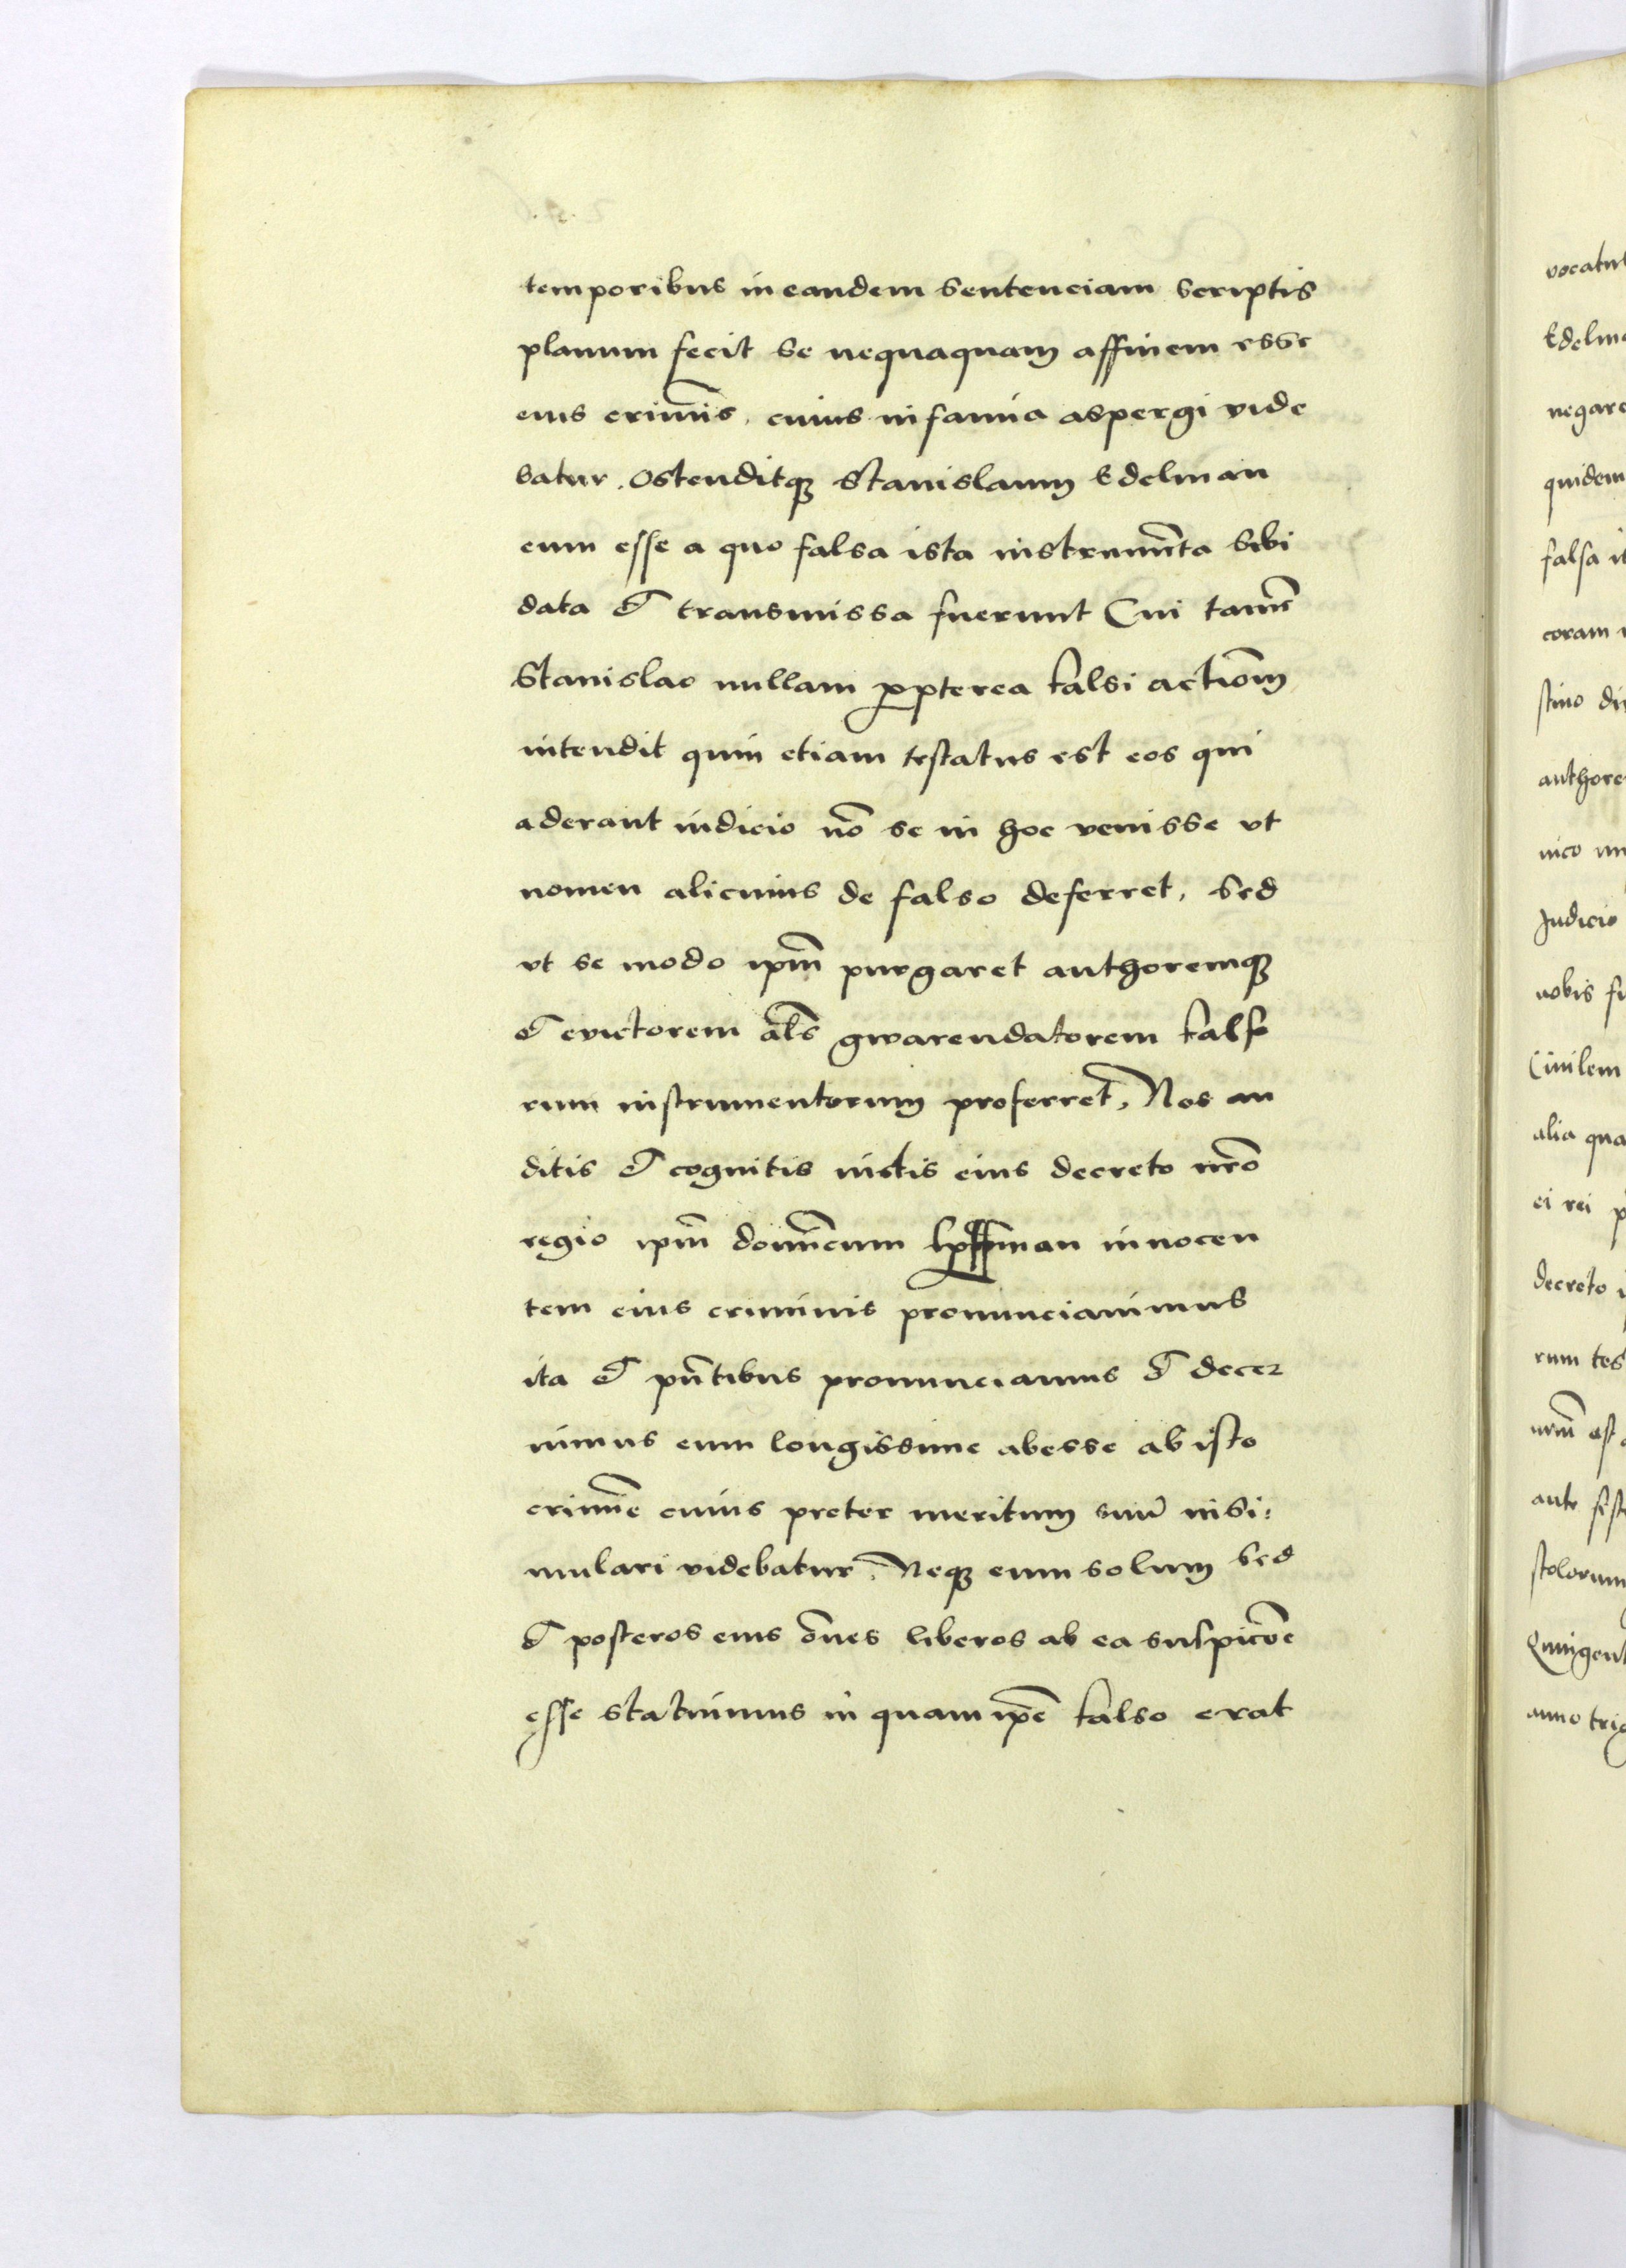 temporibus in eandem sentenciam scriptis
planum fecit se nequaquam affinem esse
eius crimis, cuius infamia aspergi vide
batur. Ostenditque Stanislaum Edelman
eum esse a quo falsa ista instrumenta sibi
data et transmissa fuerunt Cui tamen
Stanislao nullam propterea falsi actiom
intendit quin etiam testatus est eos qui
aderant iudicio no se in hoc venisse ut
nomen alicuius de falso deferret, sed
ut se modo ipm purgaret authoremque
et evictorem als gwarendatorem falso
rum instrumentorum proferret. Nos au
ditis et cognitis iustis eius decreto nro
regio ipm domicum innocen
tem eius criminis pronunciavimus
ita et pntibus pronunciamus et decer
nimus eum longissime abesse ab isto
crimie cuius preter meritum suu insi:
mulari videbatur. Neque eum solum sed
et posteros eius oes liberos ab ea suspicoe
esse statuimus in quam ipe falso erat
vocatu
Edelma
negare
quidem
falsa i
coram
stino di
authore
nico
Iudicio
nobis fu
Civilem
alia qua
ei rei p
decreto
rum tes
nrm est
ante sist
stolorum
Quingent
anno trig